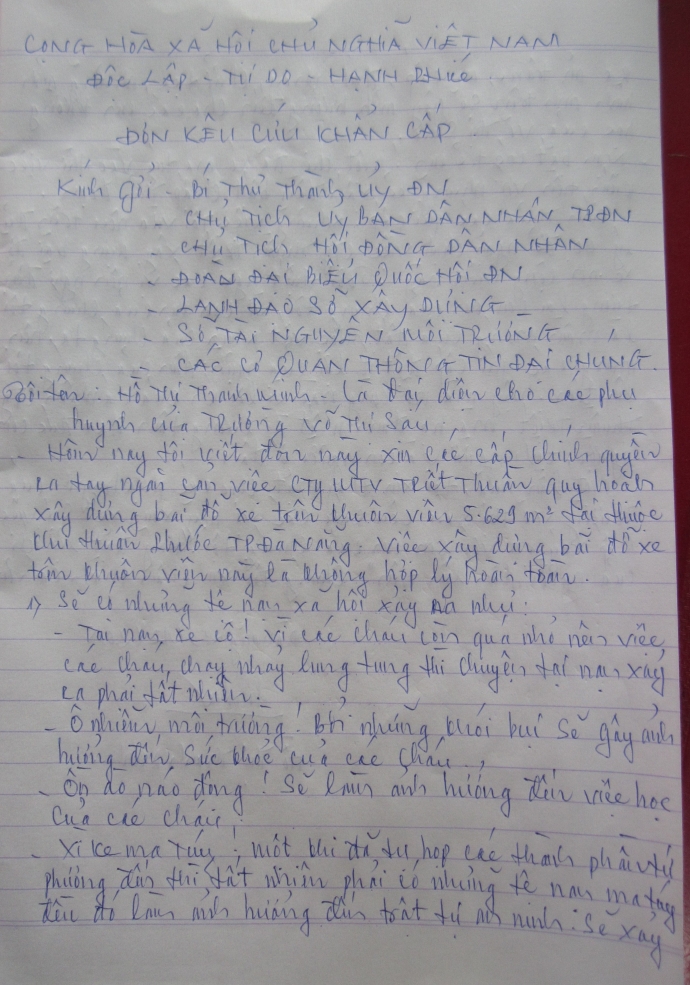 CỘNG HÒA XÃ HỘI CHỦ NGHĨA VIỆT NAM
ĐỘC LẬP - TỰ DO - HẠNH PHÚC
ĐƠN KÊU CỨU KHẨN CẤP
Kính gởi - Bí Thư Thành Ủy ĐN
- CHỦ TỊCH UỶ BAN DÂN NHÂN TPĐN
- CHỦ TỊCH HỘI ĐỒNG DÂN NHÂN
- ĐOÀN ĐẠI BIỂU QUỐC HỘI ĐN
- LÃNH ĐẠO SỞ XÂY DỰNG
- SỞ TÀI NGUYÊN MÔI TRƯỜNG
- CÁC CƠ QUAN THÔNG TIN ĐẠI CHÚNG.
Tôi tên: Hồ Thị Thanh - Là đại diện cho các phụ
huynh của Trường Võ Thị Sáu.
- Hôm nay tôi viết đơn này xin các cấp chính quyền
ra tay ngăn cản việc CTY MTV Triết Thuần quy hoạch
xây dựng bãi đỗ xe trên khuôn viên 5.629 m² tại thuộc
khu thuần Phước TP Đà Nẵng. Việc xây dựng bãi đỗ xe
trên khuôn viên này là không hợp lý hoàn toàn.
1) Sẽ có những tệ nạn xã hội xảy ra như:
- Tai nạn xe cộ! vì các cháu còn quá nhỏ nên việc
các cháu chạy nhảy lung tung thì chuyện tai nạn xảy
ra phải tất nhiên.
- Ô nhiễm môi trường! Bởi những khói bụi sẽ gây ảnh
hưởng đến sức khoẻ của các cháu.
- Ồn ào náo động! Sẽ làm ảnh hưởng đến việc học
của các cháu!
- Xì ke ma túy; một khi đã tụ họp các thành phần tứ
phương đến thì tất nhiên phải có những tệ nạn ma túy
đều đó làm ảnh hưởng đến trật tự an ninh: sẽ xảy